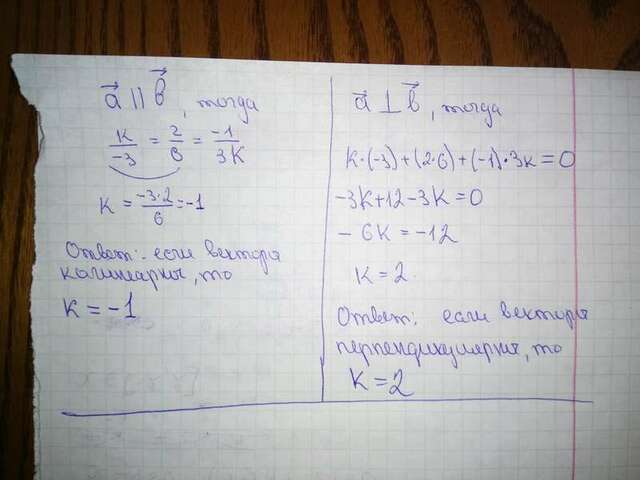 a⃗ || b⃗, тогда
k/-3 = 2/6 = -1/3k
k = -3·2/6 = -1
Ответ: если вектора
калинеарны, то
k = -1
a⃗ ⊥ b⃗, тогда
k·(-3)+(2·6)+(-1)·3k=0
-3k+12-3k=0
- 6k = -12
k = 2.
Ответ: если вектора
перпендикулярны, то
k = 2